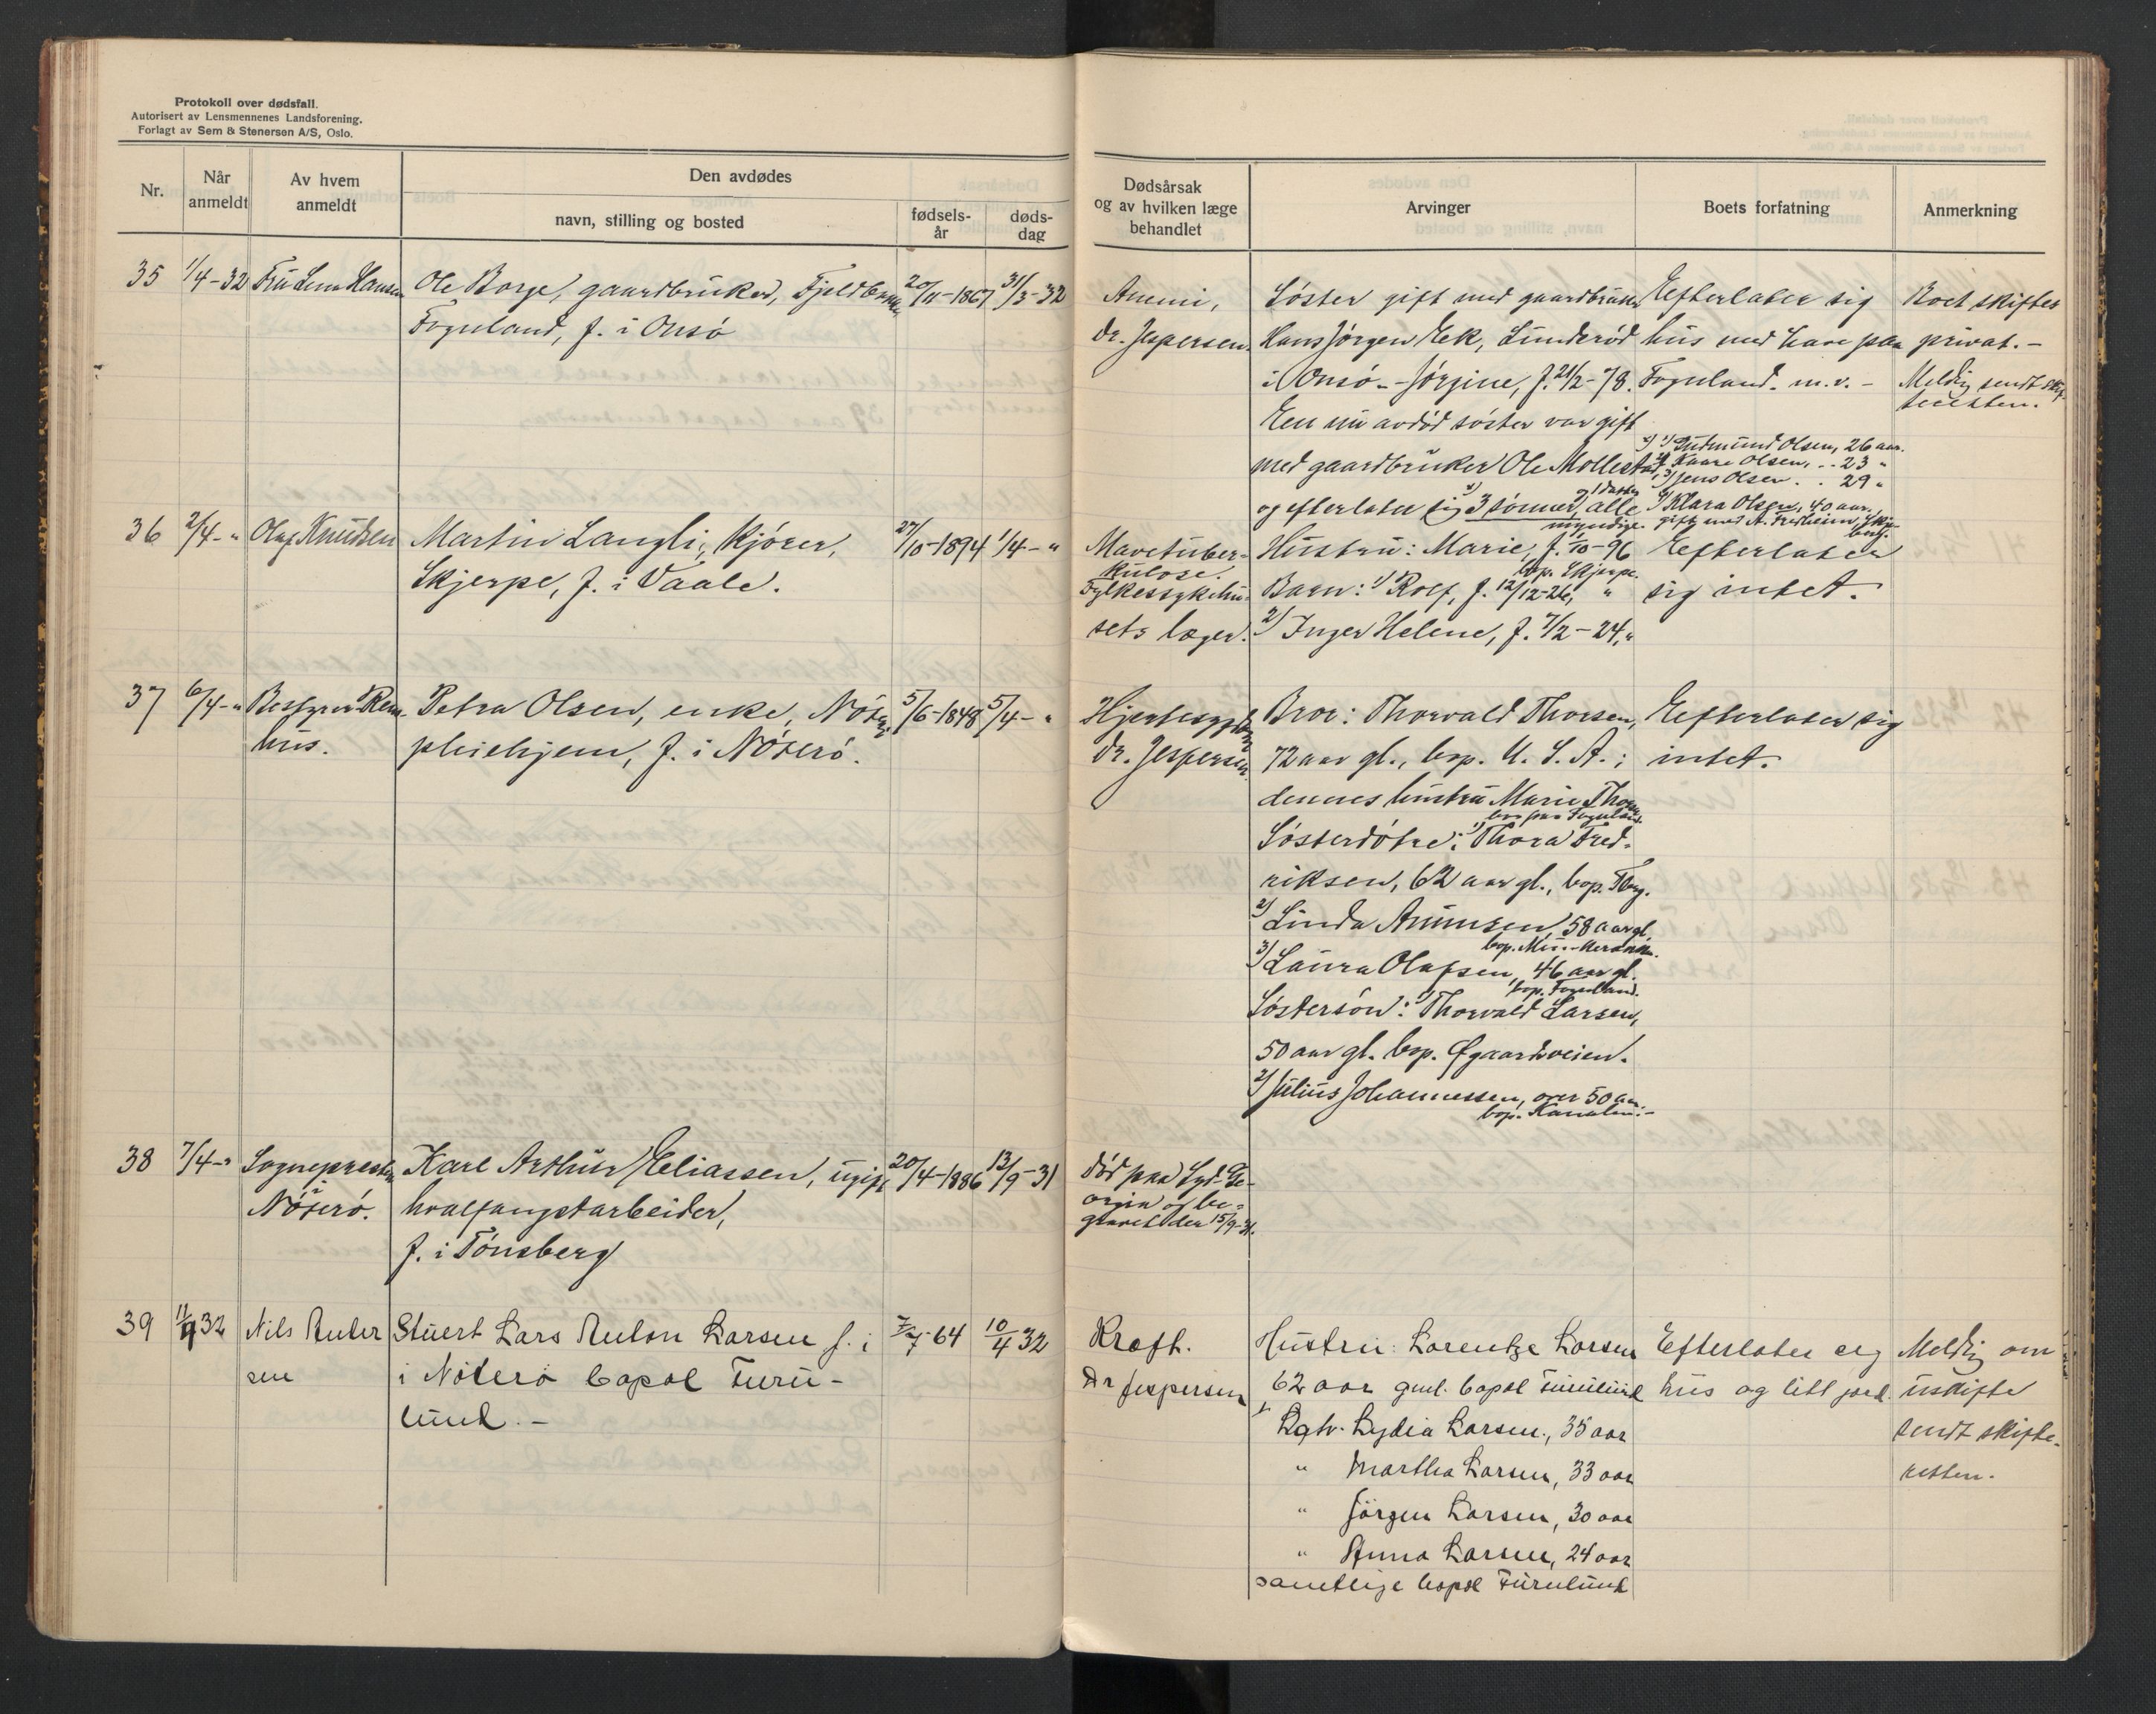 Protokoll over dødsfall.
Autorisert av Lensmennenes Landsforening.
Forlagt av Sem & Stenersen A/S, Oslo.
Nr.
Når anmeldt
Av hvem anmeldt
Den avdødes
navn, stilling og bosted
fødsels-år
døds-dag
Dødsårsak og av hvilken læge behandlet
Arvinger
Boets forfatning
Anmerkning
35
1/4-32
Fru Lena Hansen
Ole Borge, gaardbruker,
Føynland, f. i Onsö
20/11-1867
31/3-32
Anemi,
dr. Jespersen.
Söster gift med gaardbruker
Hans Jörgen Ek, Lunderöd
i Onsö - Jörgine, f. 21/2-78.
En nu avdöd söster var gift
med gaardbruker Ole Mollestad
og efterlater sig x) 3 sönner, og 1 datter, alle
myndige.
Efterlater sig
hus med have paa
Föynland. m.v. -
x) 1) Gudmund Olsen, 26 aar.
2) Kaare Olsen, .. 23 "
3) Jens Olsen . . 29 "
4) Klara Olsen, 40 aar,
gift med A. Fredheim,
Boet skiftes
privat. -
Meldig sendt skif-
teretten.
36
2/4- "
Olaf Knudsen
Martin Langli, kjörer,
Skjerpe, f. i Vaale.
27/10-1874
1/4- "
Mavetuber-
kulose.
Fylkessykehu-
sets læger.
Hustru: Marie, f. 1/10-96
bop. Skjerpe.
Barn: 1) Rolf, f. 12/12-26, "
2) Inger Helene, f. 7/2-24, "
Efterlater
sig intet.
37
6/4- "
Bestyrer Rem-
hus.
Petra Olsen, enke, Nöterö
pleiehjem, f. i Nöterö.
5/6-1848
5/4- "
Hjertesygdom
dr. Jespersen.
Bror: Thorvald Thorsen,
72 aar gl., bop. U. S. A.;
dennes hustru Marie Thorsen
bor paa Föynland.
Sösterdötre: 1) Thora Fred-
riksen, 62 aar gl., bop. Tbrg.
2) Linda Amunsen, 58 aar gl.
3) Laura Olafsen, 46 aar gl.
bop. Föynland.
Söstersön: 1) Thorvald Larsen,
50 aar gl. bop. Øgaardsveien.
2) Julius Johannessen, over 50 aar.
bop. Kanalen. -
Efterlater sig
intet.
38
7/4- "
Sognepresten
i
Nöterö.
Karl Arthur Eliassen, ugift
hvalfangstarbeider,
f. i Tönsberg
20/4-1886
13/9-31
död paa Syd-Ge-
orgia og be-
gravet der 15/9-31.
39
11/4 32
Nils Ander
sen
Stuert Lars Anton Larsen f. i
i Nöterö bopæl Furu-
lund. -
7/7-64
10/4 32
Kræft.
Dr Jespersen
Hustru: Lorentze Larsen
62 aar gml. bopæl Furulund
Dqtr. Lydia Larsen, 35 aar
" Martha Larsen, 33 aar
" Jörgen Larsen, 30 aar
" Anna Larsen, 24 aar
samtlige bopæl Furulund
Efterlater seg
hus og litt jord.
Meldig om
uskifte
sendt skifte-
retten.